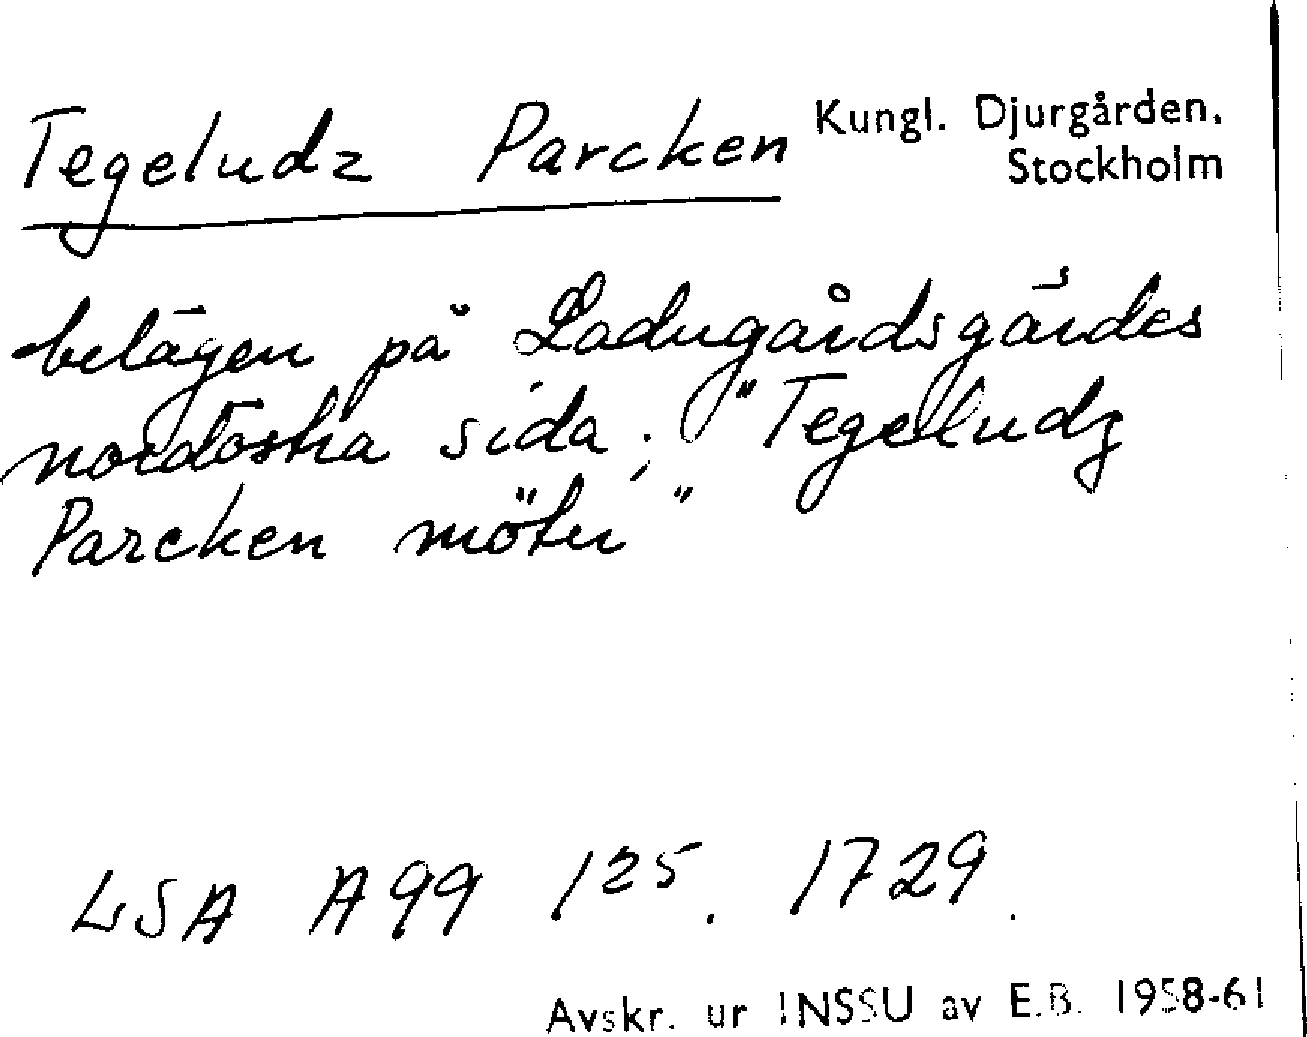 Tegeludz Parcken Kungl. Djurgården.
Stockholm
belägen på Ladugårdsgärdes
nordöstra sida; "Tegeludz
Parcken möter"
LSA A99 125. 1729.
Avskr. ur INSSU av E.B. 1958-61